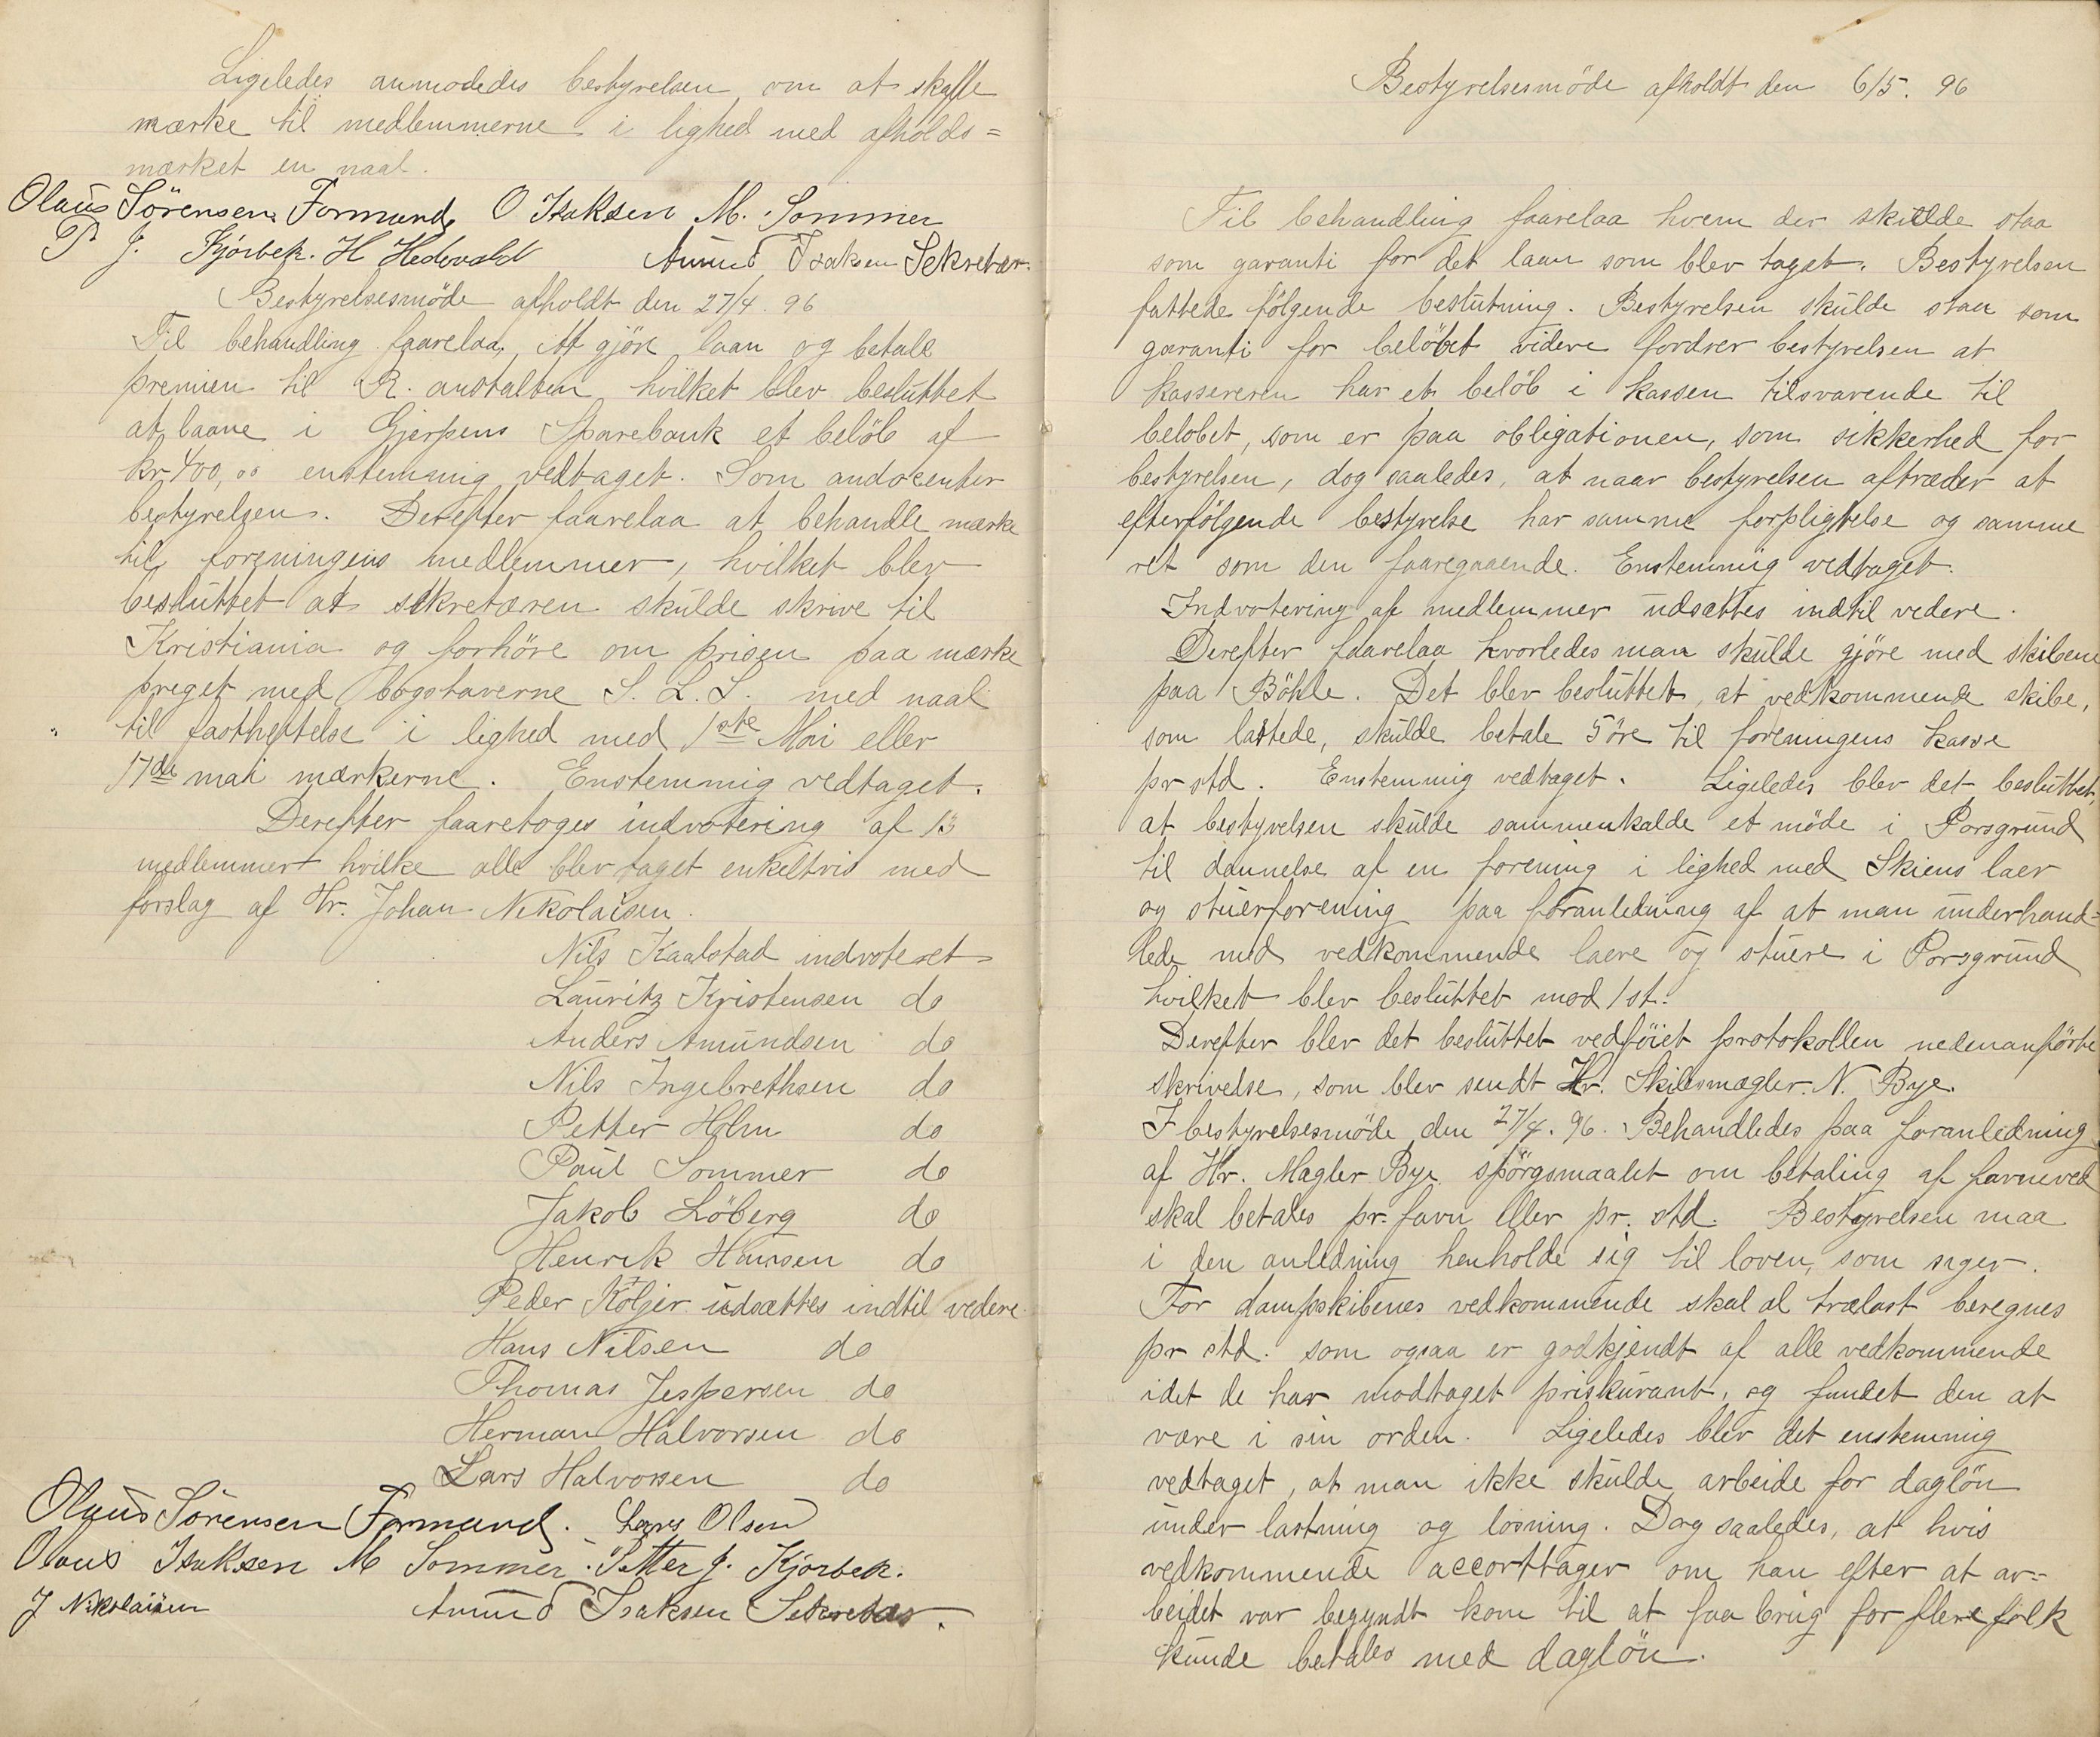 Ligeledes anmodedes bestyrelsen om at skaffe
mærke til medlemmerne i lighed med afholds=
mærket en naal.
Olaus Sörensen Formand O Isaksen M. Sommer
P J. Kjörbek. H Hedevald Amund Isaksen Sekretær.
Bestyrelsesmöde afholdt den 27/4. 96
Til behandling faarelaa, At gjöre laan og betale
premien til R. anstalten hvilket blev besluttet
at laane i Gjerpens Sparebank et belöb af
kr 400,00 enstemmig vedtaget. Som andosenter
bestyrelsen. Derefter faarelaa at behandle mærke
til foreningens medlemmer, hvilket blev
besluttet at sekretæren skulde skrive til
Kristiania og forhöre om prisen paa mærke
preget med bogstaverne S. L. S. med naal
til fastheftelse i lighed med 1ste Mai eller
17de mai mærkerne. Enstemmig vedtaget.
Derefter faaretoges indvotering af 13
medlemmer hvilke alle blev taget enkeltvis med
forslag af Hr. Johan Nikolaisen.
Nils Kaalstad indvoteret
Lauritz Kristensen do
Anders Amundsen do
Nils Ingebrethsen do
Petter Holm do
Paul Sommer do
Jakob Löberg do
Henrik Hansen do
Peder Köljer udsættes indtil vedere
Hans Nilsen do
Thomas Jespersen do
Herman Halvorsen do
Lars Halvorsen do
Olaus Sörensen Formand. Lars Olsen
Olaus Isaksen M Sommer. Petter J. Kjörbek.
J Nikolaisen Amund Isaksen Sekretær.
Bestyrelsesmöde afholdt den 6/5. 96
Til behandling faarelaa hvem der skulde staa
som garanti for det laan som blev taget. Bestyrelsen
fattede fölgende beslutning. Bestyrelsen skulde staa som
garanti for belöbet videre fordrer bestyrelsen at
kassereren har et belöb i kassen tilsvarende til
belobet, som er paa obligationen, som sikkerhed for
bestyrelsen, dog saaledes, at naar bestyrelsen aftræder at
efterfölgende bestyrelse har samme forpligtelse og samme
ret som den faaregaaende. Enstemmig vedtaget.
Indvotering af medlemmer udsættes indtil vedere.
Derefter faarelaa hvorledes man skulde gjöre med skibene
paa Böhle. Det blev besluttet, at vedkommende skibe,
som lastede, skulde betale 5 öre til foreningens kasse
pr std. Enstemmig vedtaget. Ligeledes blev det besluttet,
at bestyrelsen skulde sammenkalde et möde i Porsgrund
til dannelse af en forening i lighed med Skiens laer
og stuerforening paa foranledning af at man underhand=
lede med vedkommende laere og stuere i Porsgrund
hvilket blev besluttet mod 1 st.
Derefter blev det besluttet vedföiet protokollen nedenanförte
skrivelse, som blev sendt Hr. Skibsmægler. N. Bye.
I bestyrelsesmöde den 27/4. 96. Behandledes paa foranledning
af Hr. Mægler Bye spörgsmaalet om betaling af favneved
skal betales pr. favn eller pr. std. Bestyrelsen maa
i den anledning henholde sig til loven, som siger.
For dampskibenes vedkommende skal al trælast beregnes
pr std. som ogsaa er godkjendt af alle vedkommende
idet de har modtaget priskurant, og fundet den at
være i sin orden. Ligeledes blev det enstemmig
vedtaget, at man ikke skulde arbeide for daglön
under lastning og losning. Dog saaledes, at hvis
vedkommende accorttager om han efter at ar=
beidet var begyndt kom til at faa brug for flere folk
kunde betales med daglön.